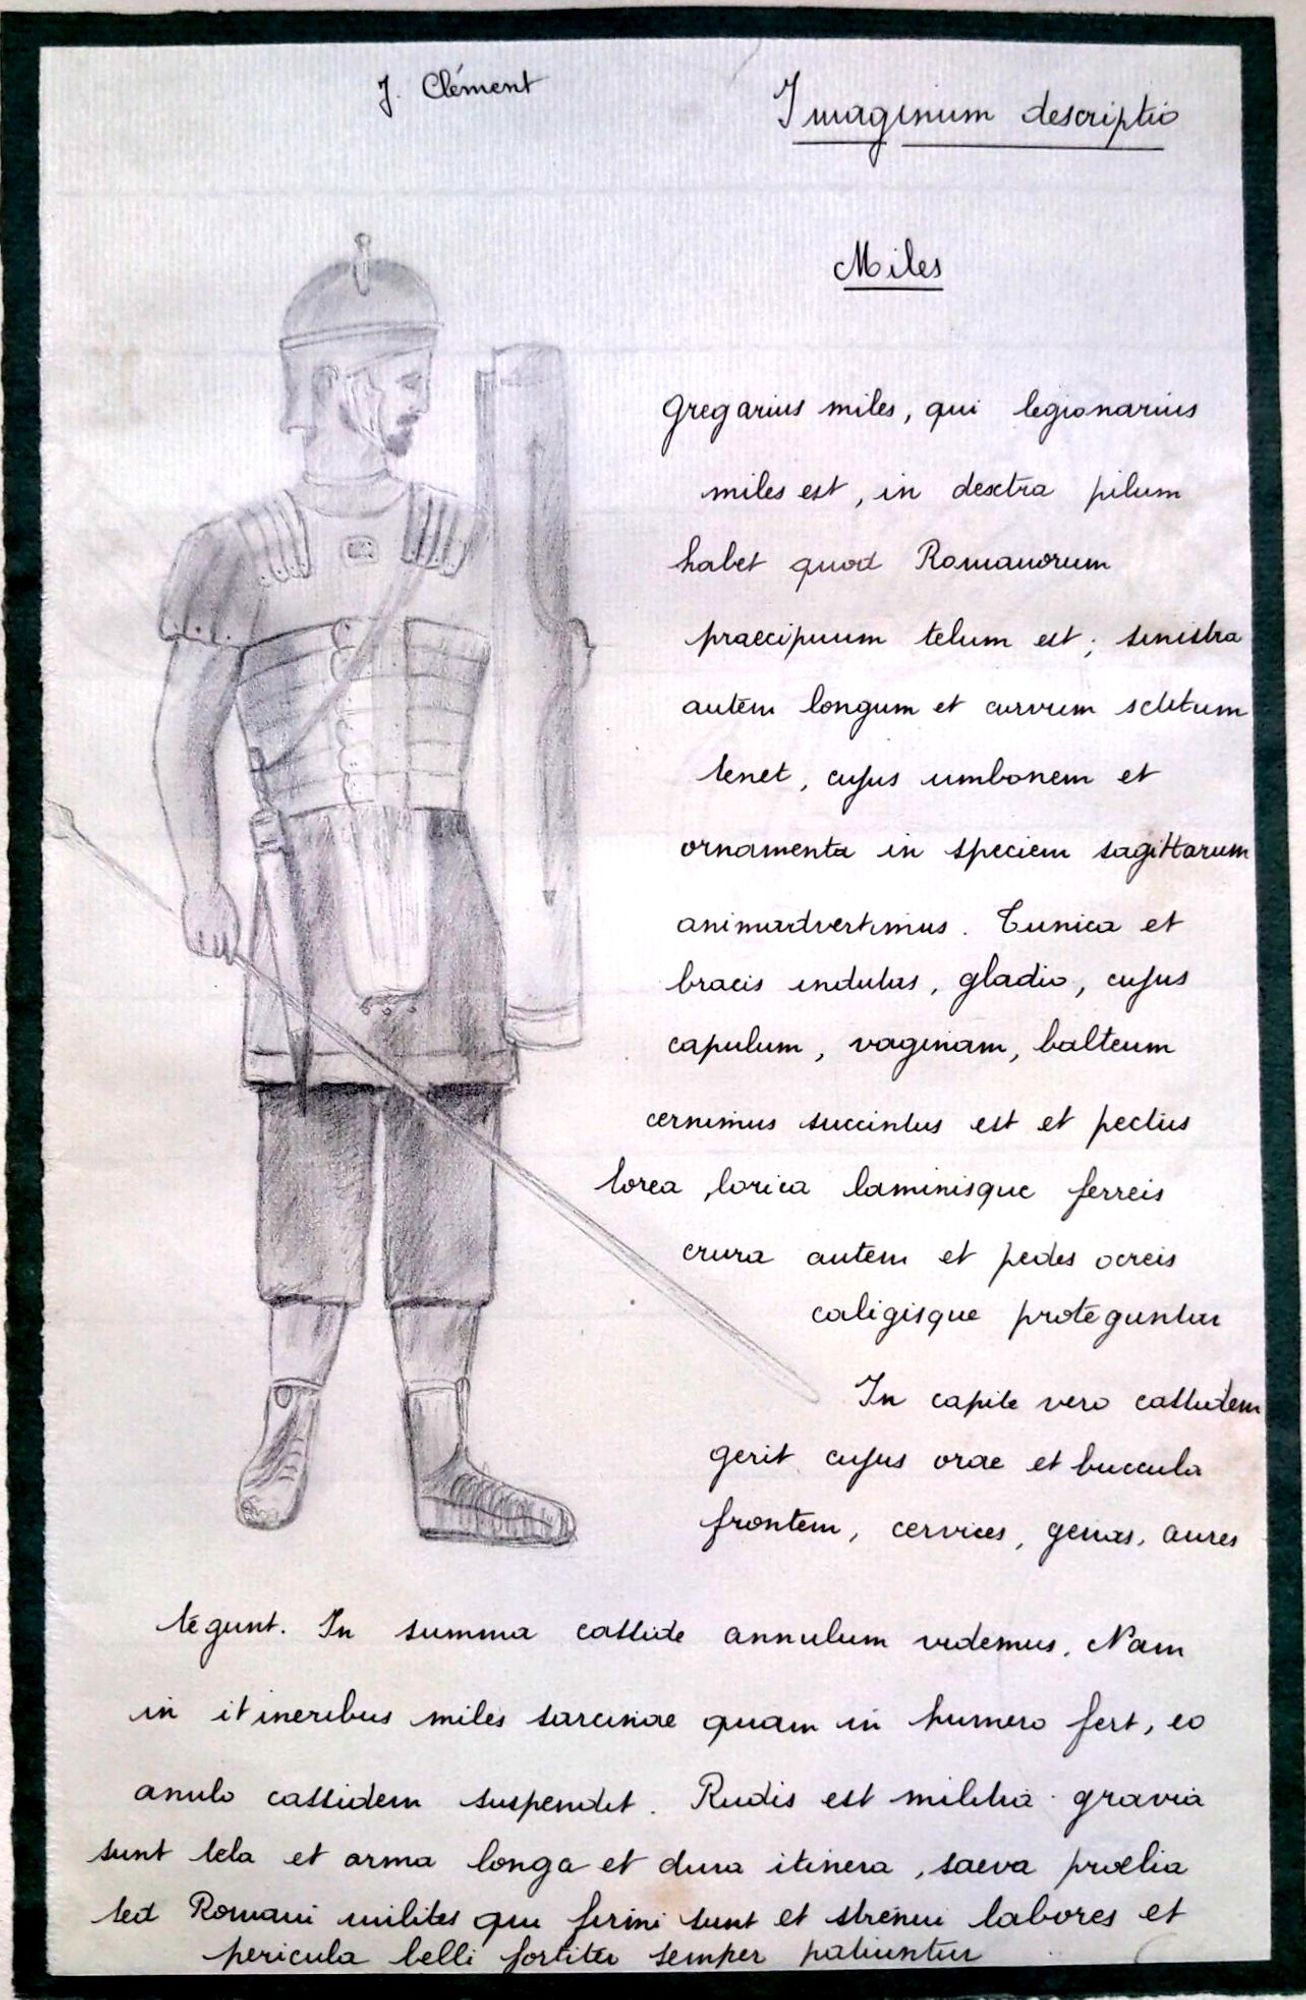 J. Clément
Imaginum descriptio
Miles
Gregarius miles, qui legionarius
miles est, in dextra pilum
habet quod Romanorum
praecipuum telum est; sinistra
autem longum et curvum scutum
tenet, cujus umbonem et
ornamenta in speciem sagittarum
animadvertimus. Tunica et
bracis indutus, gladio, cujus
capulum, vaginam, balteum
cernimus succintus est et pectus
lorea, lorica laminisque ferreis
crura autem et pedes ocreis
caligisque proteguntur
In capite vero cassidem
gerit cujus orae et buccula
frontem, cervices, genas, aures
tegunt. In summa casside annulum videmus. Nam
in itineribus miles sarcinae quam in humero fert, eo
anulo cassidem suspendit. Rudis est militia gravia
sunt tela et arma longa et dura itinera, saeva prœlia
sed Romani milites qui firmi sunt et strenui labores et
pericula belli fortiter semper patiuntur